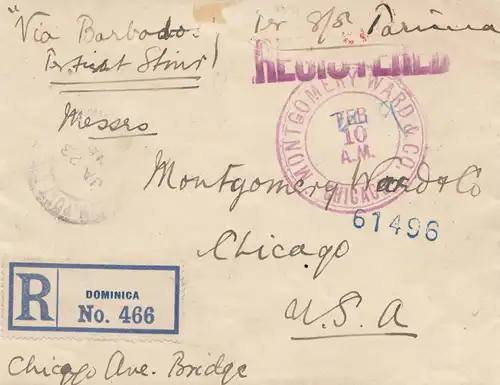 "Via Barbados, Per S/S Parima
REGISTERED
Messrs
MONTGOMERY WARD & CO.
FEB
10
A.M.
CHICAGO
JA 23
Montgomery Ward & Co
61496
Chicago
U.S.A
R
DOMINICA
No. 466
Chicago Ave. Bridge